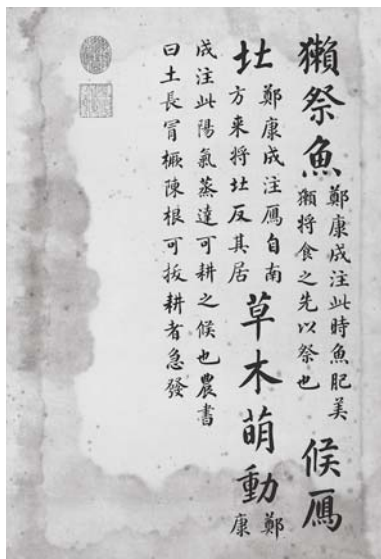 獺祭魚
鄭康成注此時魚肥美
獺將食之先以祭也
候鴈
北
鄭康成注鴈自南
方来將北反其居
草木萌動
鄭
康
成注此陽氣蒸達可耕之候也農書
曰土長冒橛陳根可拔耕者急發